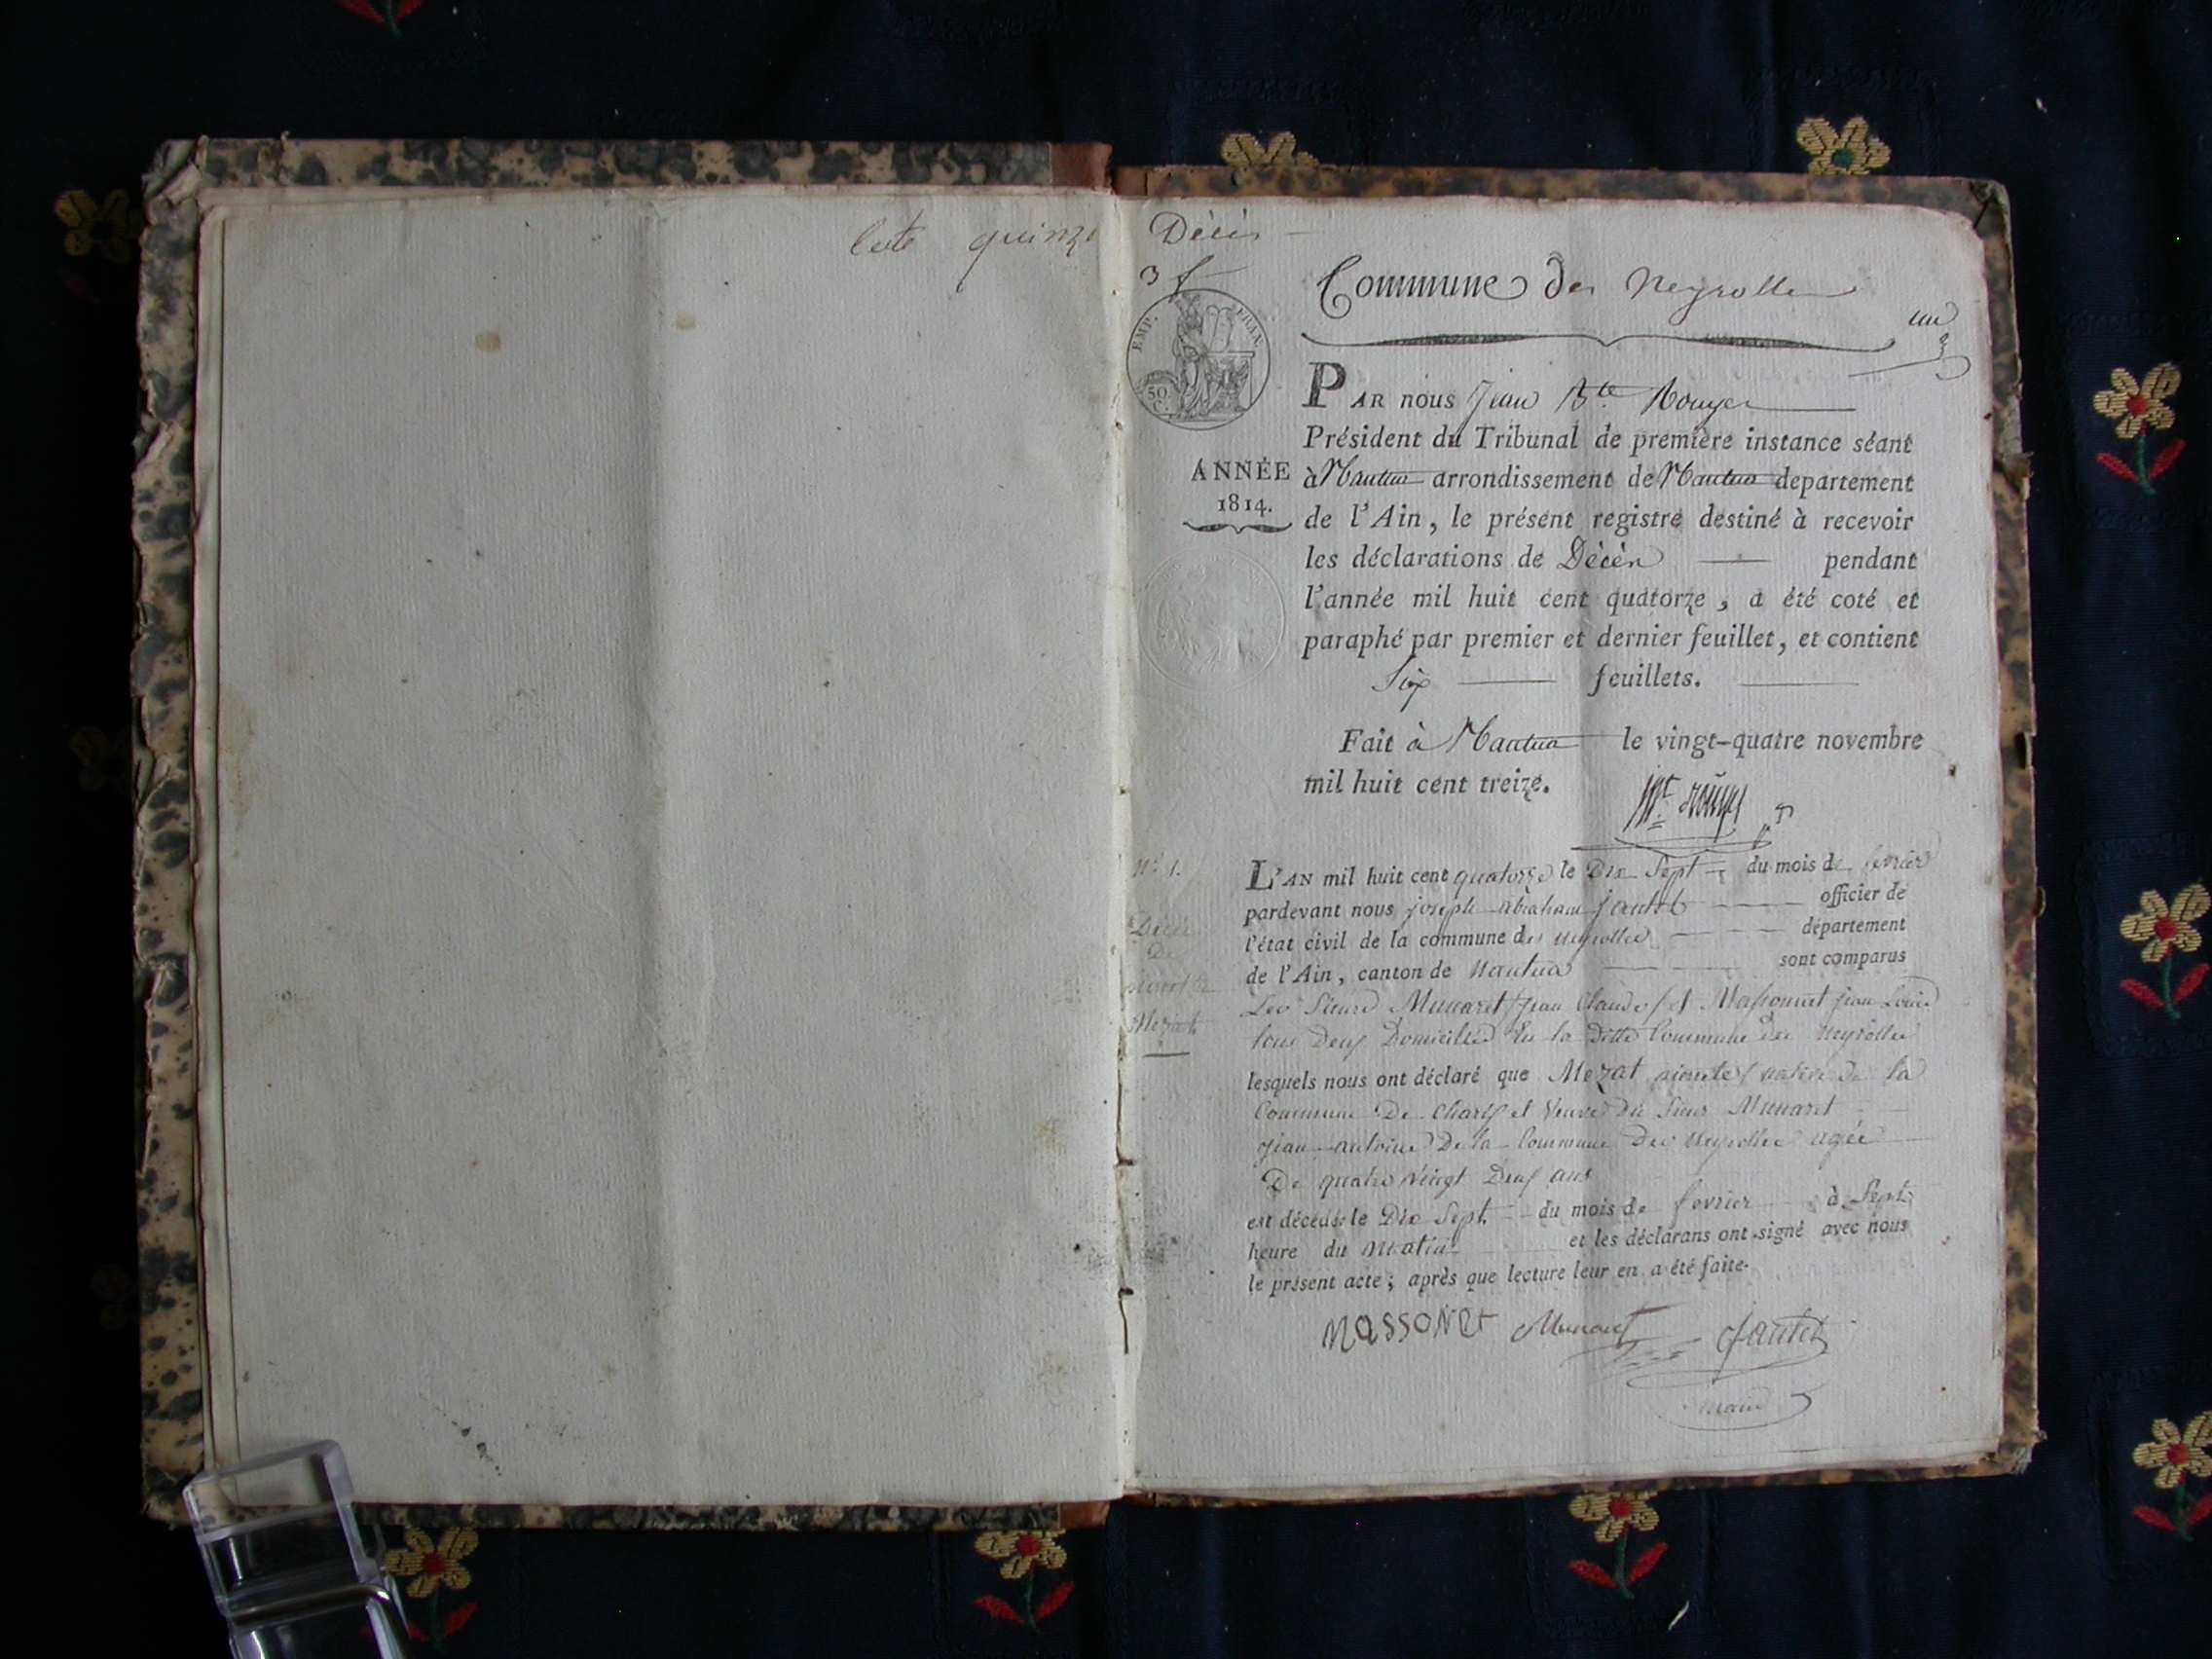 Cote quinze
Décès
3 f
Commune des Neyrolles
un
EMP. FRAN.
50
C.
PAR nous Jean Bte Rouyer
Président du Tribunal de première instance séant
ANNÉE
1814.
à Nantua arrondissement de Nantua departement
de l'Ain, le présent registre destiné à recevoir
les déclarations de Décès pendant
l'année mil huit cent quatorze, a été coté et
paraphé par premier et dernier feuillet, et contient
Six feuillets.
Fait à Nantua le vingt-quatre novembre
mil huit cent treize.
N° 1.
Décès
De
Mezat
L'AN mil huit cent quatorze le Dix Sept du mois de fevrier
pardevant nous joseph abraham jantet officier de
l'état civil de la commune des neyrolles département
de l'Ain, canton de Nantua sont comparus
Les Sieurs Munaret jean Claude et Massonnet jean Louis
tous Deux Domiciliés En la Ditte Commune Des neyrolles
lesquels nous ont déclaré que Mezat native De la
Commune De Charix et Veuve du Sieur Munaret
jean antoine De la Commune Des Neyrolles agée
De quatre Vingt Deux ans
est décedée le Dix Sept du mois de fevrier à Sept
heure du matin et les déclarans ont signé avec nous
le présent acte; après que lecture leur en a été faite.
MASSONET Munaret Jantet